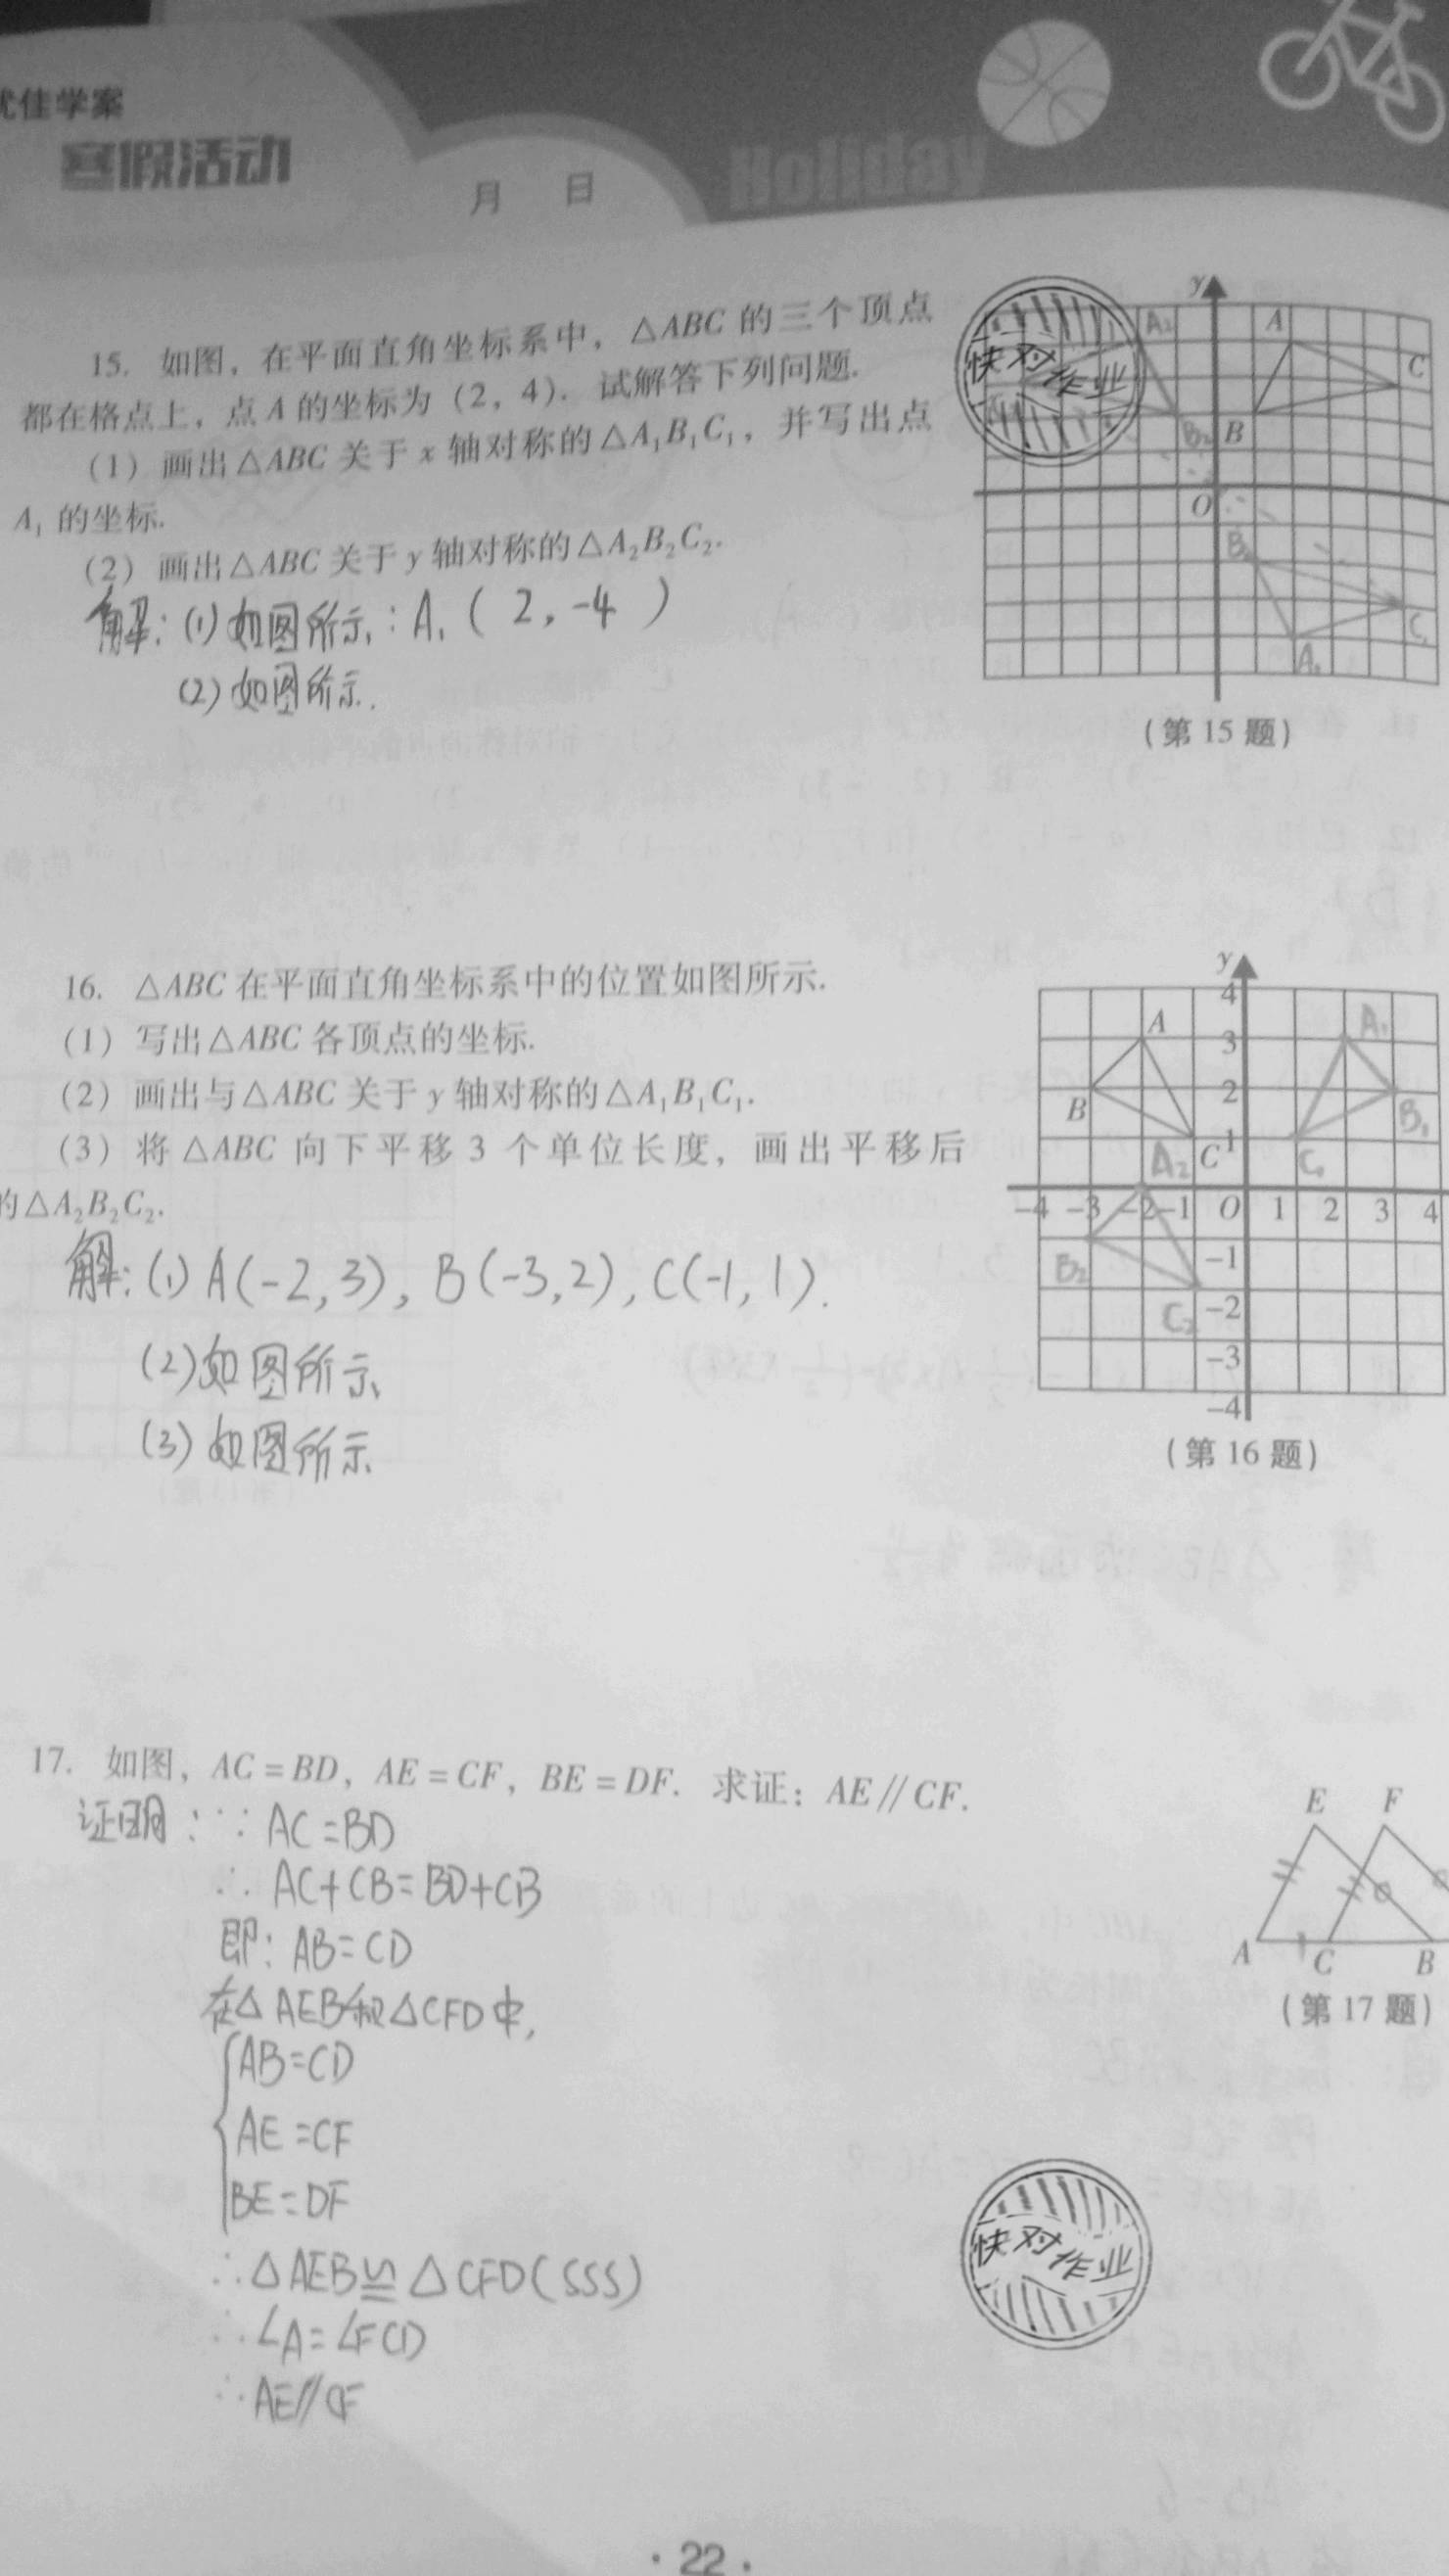 优佳学案
寒假活动
月 日
Holiday
15. 如图，在平面直角坐标系中，△ABC 的三个顶点
都在格点上，点 A 的坐标为（2，4）. 试解答下列问题.
（1）画出△ABC 关于 x 轴对称的△A₁B₁C₁，并写出点
A₁ 的坐标.
（2）画出△ABC 关于 y 轴对称的△A₂B₂C₂.
解：(1) 如图所示：A₁( 2，-4 )
(2) 如图所示.
快对作业
y
A₂ A C
B₂ B
O
B₁
C₁
A₁
（第 15 题）
16. △ABC 在平面直角坐标系中的位置如图所示.
（1）写出△ABC 各顶点的坐标.
（2）画出与△ABC 关于 y 轴对称的△A₁B₁C₁.
（3）将△ABC 向下平移 3 个单位长度，画出平移后
的△A₂B₂C₂.
解：(1) A(-2,3), B(-3,2), C(-1, 1).
(2) 如图所示
(3) 如图所示
y
4
A 3 A₁
B 2 B₁
A₂ C 1 C₁
-4 -3 -2 -1 O 1 2 3 4
B₂ -1
C₂ -2
-3
-4
（第 16 题）
17. 如图，AC = BD，AE = CF，BE = DF. 求证：AE∥CF.
证明：∵ AC=BD
∴ AC+CB=BD+CB
即：AB=CD
在△AEB和△CFD中，
AB=CD
AE=CF
BE=DF
∴△AEB≌△CFD(SSS)
∴∠A=∠FCD
∴AE∥CF
E F
A C B
（第 17 题）
快对作业
· 22 ·